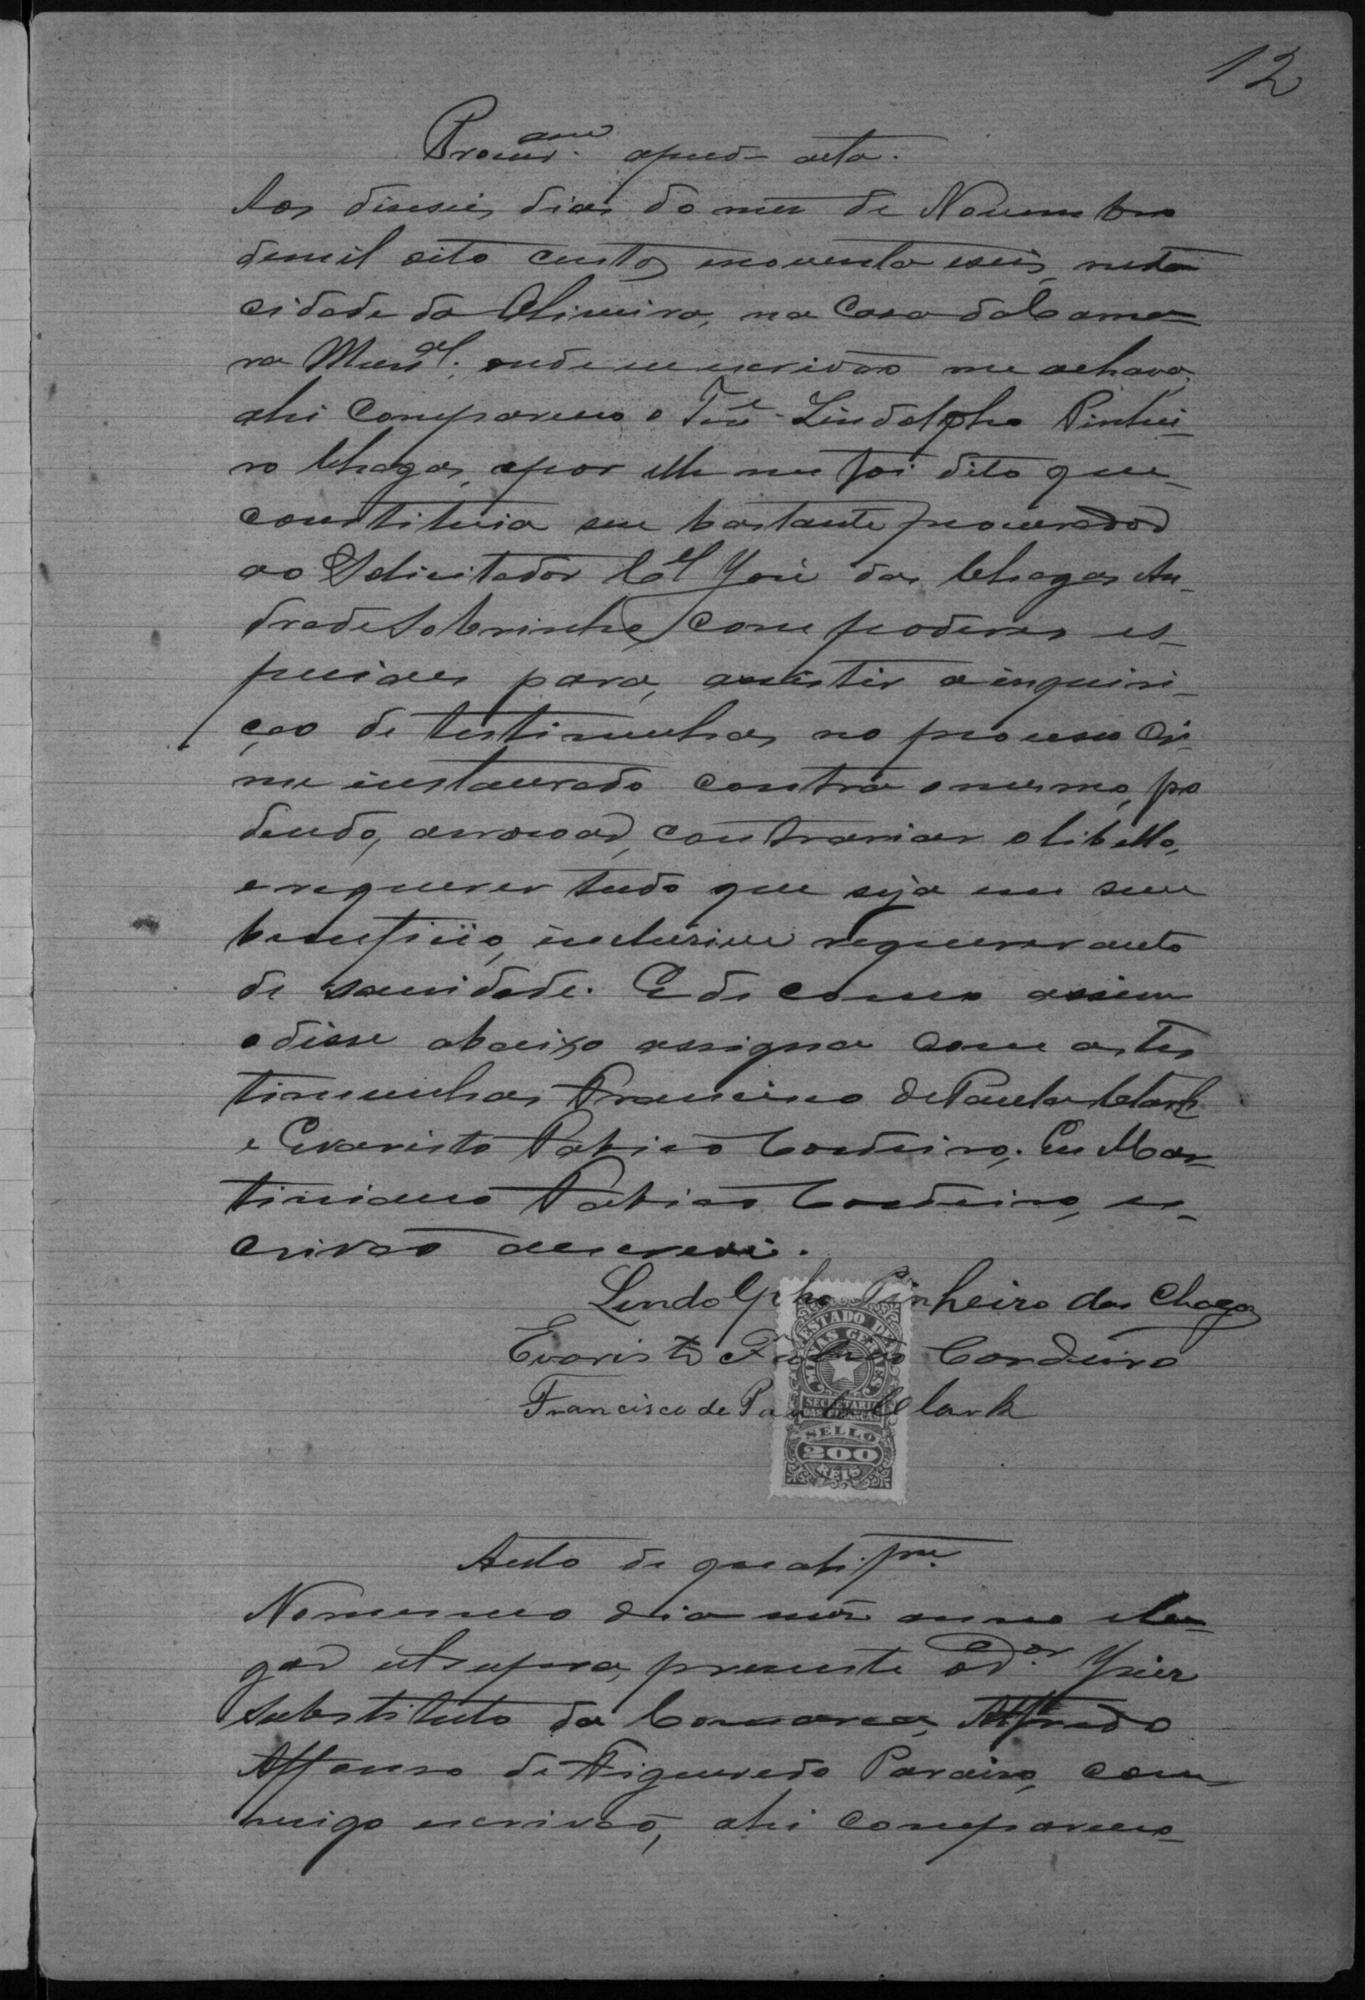 12
Procur.am apud-acta.
Aos diseseis dias do mes de Novembro
de mil oito centos e noventa e seis, nesta
cidade da Oliveira, na Casa da Cama-
ra Mun.al, onde eu escrivão me achava,
ahi compareceu o Ten.e Lindolpho Pinhei-
ro Chagas, e por elle me foi dito que
constituia seu bastante procurador
ao Solicitador C.el José das Chagas An-
drade Sobrinho, com poderes es-
peciaes para, assistir a inquiri-
ção de testimunhas no processo cri-
me instaurado contra o mesmo, po
dendo, arrosoar, contrariar o libello,
e requerer tudo que seja em seu
beneficiio, inclusive requerer auto
de sanidade. E de como assim
o disse abaixo assigna com as tes
timunhas Francisco de Paula Clark
e Evaristo Fabiano Cordeiro. Eu Mar-
tiniano Fabiano Cordeiro, es-
crivão a escrevi.
Lindolpho Pinheiro das Chagas
Evaristo Cordeiro
Francisco de Paula Clark
ESTADO DE
MINAS GERAES
SECRETARIA
DAS FINANÇAS
SELLO
200
REIS
Auto de qualif.am
No mesmo dia mês anno e lu-
gar ut supra, presente o D.or Juiz
Substituto da Comarca, Alfredo
Affonso de Figueredo Paraiso, com-
migo escrivão, ahi compareceo